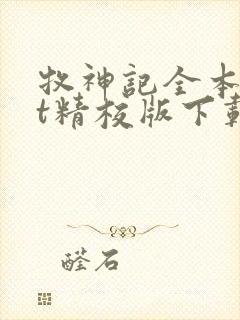 牧神記全本
t精校版下載
醛石